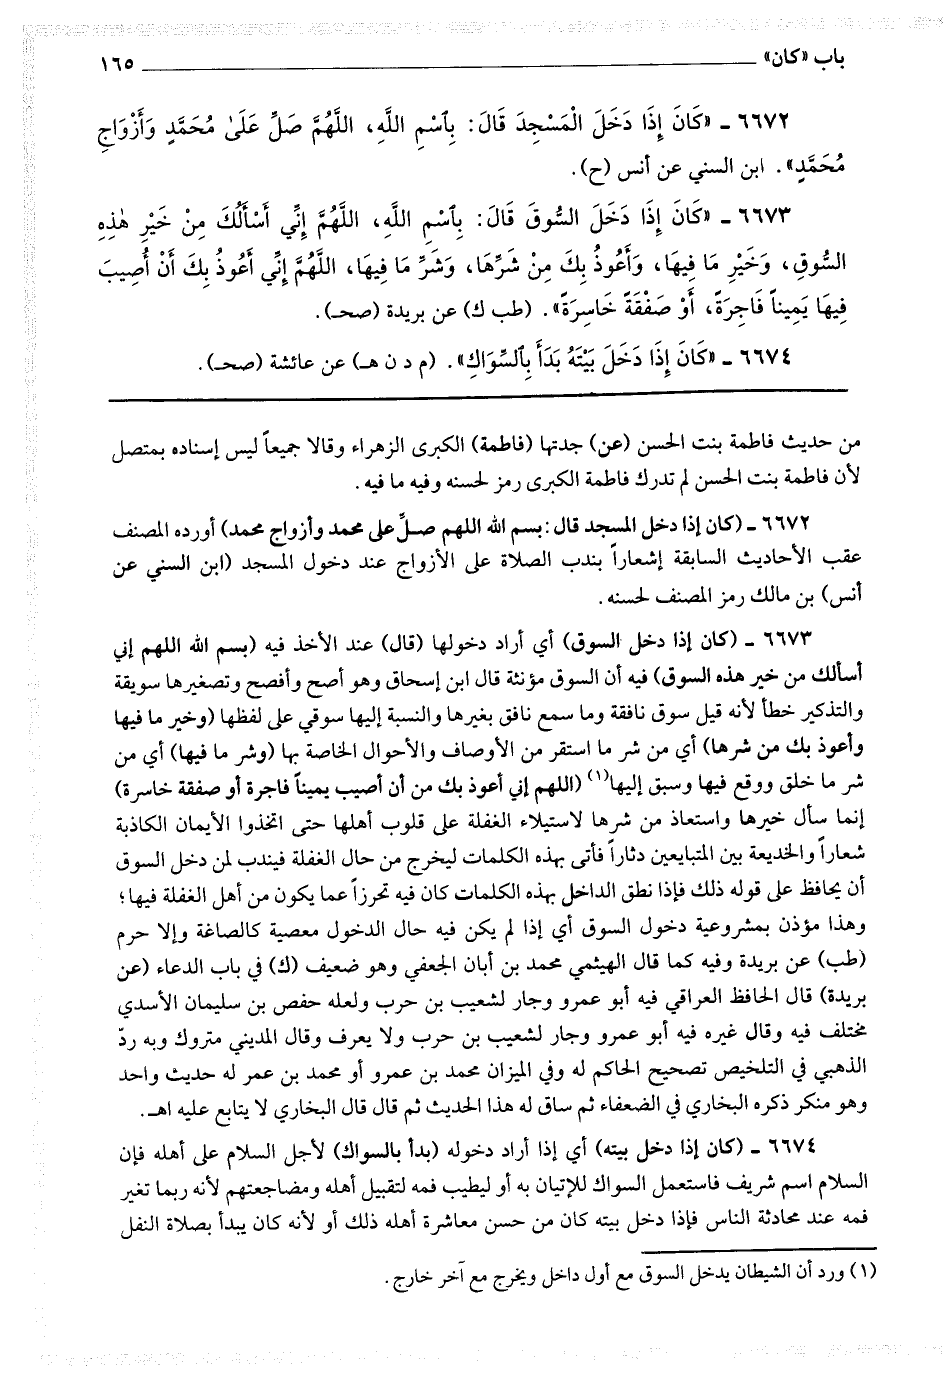 باب «كان» ١٦٥
٦٦٧٢ ـ «كَانَ إِذَا دَخَلَ الْمَسْجِدَ قَالَ: بِٱسْمِ اللَّهِ، اللَّهُمَّ صَلِّ عَلَىٰ مُحَمَّدٍ وَأَزْوَاجِ
مُحَمَّدٍ». ابن السني عن أنس (ح).
٦٦٧٣ ـ «كَانَ إِذَا دَخَلَ السُّوقَ قَالَ: بِٱسْمِ اللَّهِ، اللَّهُمَّ إِنِّي أَسْأَلُكَ مِنْ خَيْرِ هٰذِهِ
السُّوقِ، وَخَيْرِ مَا فِيهَا، وَأَعُوذُ بِكَ مِنْ شَرِّهَا، وَشَرِّ مَا فِيهَا، اللَّهُمَّ إِنِّي أَعُوذُ بِكَ أَنْ أُصِيبَ
فِيهَا يَمِيناً فَاجِرَةً، أَوْ صَفْقَةً خَاسِرَةً». (طب ك) عن بريدة (صحـ).
٦٦٧٤ ـ «كَانَ إِذَا دَخَلَ بَيْتَهُ بَدَأَ بِٱلسِّوَاكِ». (م د ن هـ) عن عائشة (صحـ).
من حديث فاطمة بنت الحسن (عن) جدتها (فاطمة) الكبرى الزهراء وقالا جميعاً ليس إسناده بمتصل
لأن فاطمة بنت الحسن لم تدرك فاطمة الكبرى رمز لحسنه وفيه ما فيه.
٦٦٧٢ ـ (كان إذا دخل المسجد قال: بسم الله اللهم صلِّ على محمد وأزواج محمد) أورده المصنف
عقب الأحاديث السابقة إشعاراً بندب الصلاة على الأزواج عند دخول المسجد (ابن السني عن
أنس) بن مالك رمز المصنف لحسنه.
٦٦٧٣ ـ (كان إذا دخل السوق) أي أراد دخولها (قال) عند الأخذ فيه (بسم الله اللهم إني
أسألك من خير هذه السوق) فيه أن السوق مؤنثة قال ابن إسحاق وهو أصح وأفصح وتصغيرها سويقة
والتذكير خطأ لأنه قيل سوق نافقة وما سمع نافق بغيرها والنسبة إليها سوقي على لفظها (وخير ما فيها
وأعوذ بك من شرها) أي من شر ما استقر من الأوصاف والأحوال الخاصة بها (وشر ما فيها) أي من
شر ما خلق ووقع فيها وسبق إليها(١) (اللهم إني أعوذ بك من أن أصيب يميناً فاجرة أو صفقة خاسرة)
إنما سأل خيرها واستعاذ من شرها لاستيلاء الغفلة على قلوب أهلها حتى اتخذوا الأيمان الكاذبة
شعاراً والخديعة بين المتبايعين دثاراً فأتى بهذه الكلمات ليخرج من حال الغفلة فيندب لمن دخل السوق
أن يحافظ على قوله ذلك فإذا نطق الداخل بهذه الكلمات كان فيه تحرزاً عما يكون من أهل الغفلة فيها؛
وهذا مؤذن بمشروعية دخول السوق أي إذا لم يكن فيه حال الدخول معصية كالصاغة وإلا حرم
(طب) عن بريدة وفيه كما قال الهيثمي محمد بن أبان الجعفي وهو ضعيف (ك) في باب الدعاء (عن
بريدة) قال الحافظ العراقي فيه أبو عمرو وجار لشعيب بن حرب ولعله حفص بن سليمان الأسدي
مختلف فيه وقال غيره فيه أبو عمرو وجار لشعيب بن حرب ولا يعرف وقال المديني متروك وبه ردّ
الذهبي في التلخيص تصحيح الحاكم له وفي الميزان محمد بن عمرو أو محمد بن عمر له حديث واحد
وهو منكر ذكره البخاري في الضعفاء ثم ساق له هذا الحديث ثم قال قال البخاري لا يتابع عليه اهـ.
٦٦٧٤ ـ (كان إذا دخل بيته) أي إذا أراد دخوله (بدأ بالسواك) لأجل السلام على أهله فإن
السلام اسم شريف فاستعمل السواك للإتيان به أو ليطيب فمه لتقبيل أهله ومضاجعتهم لأنه ربما تغير
فمه عند محادثة الناس فإذا دخل بيته كان من حسن معاشرة أهله ذلك أو لأنه كان يبدأ بصلاة النفل
(١) ورد أن الشيطان يدخل السوق مع أول داخل ويخرج مع آخر خارج.